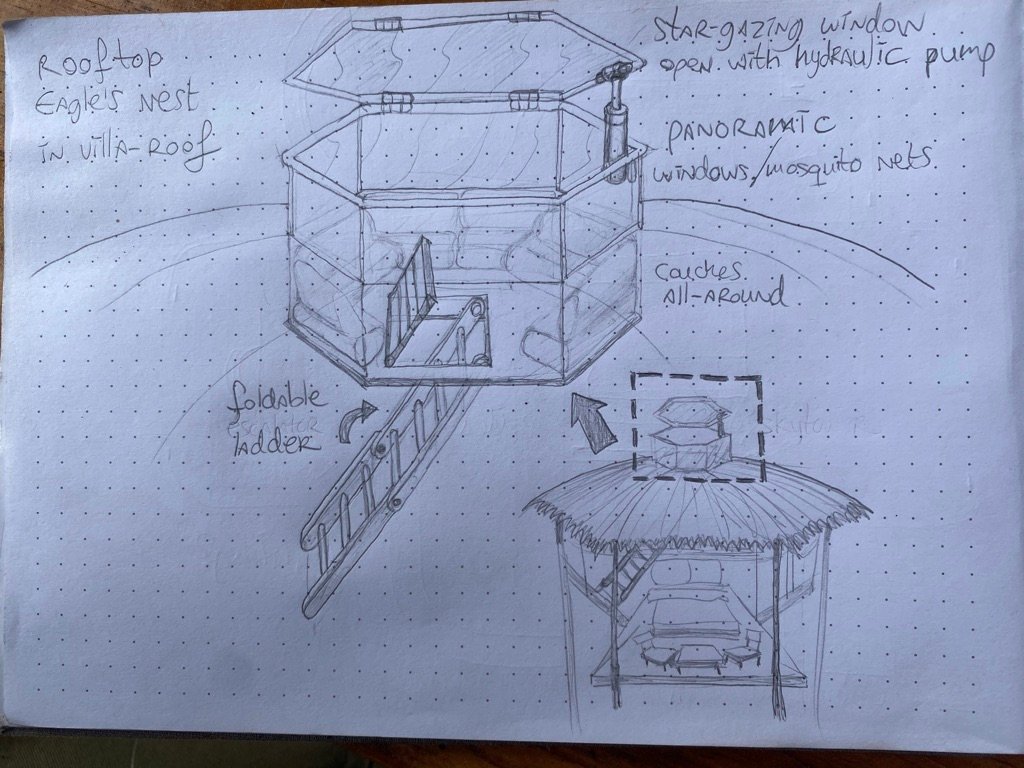 Rooftop
Eagle's Nest
in villa-roof
Star-gazing window
open with hydraulic pump
panoramic
windows/mosquito nets.
couches
All-around
foldable
ladder